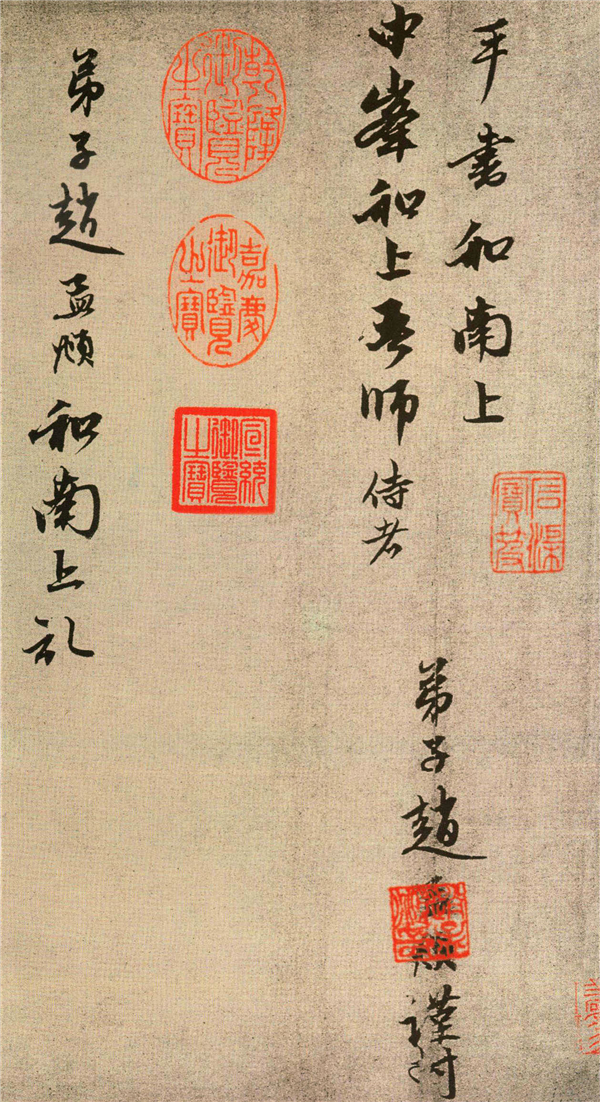 手書和南上
石渠寶笈
中峯和上吾師侍者
弟子趙孟頫謹封
乾隆御覽之寶
嘉慶御覽之寶
宣統御覽之寶
弟子趙孟頫和南上礼